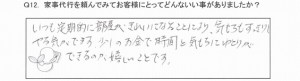 Q12. 家事代行を頼んでみてお客様にとってどんないい事がありましたか?
いつも定期的に部屋がきれいになることにより、気もちもすっきり
やる気がでます。少しのお金で時間と気もちにゆとりが
できるのが嬉しいことです。